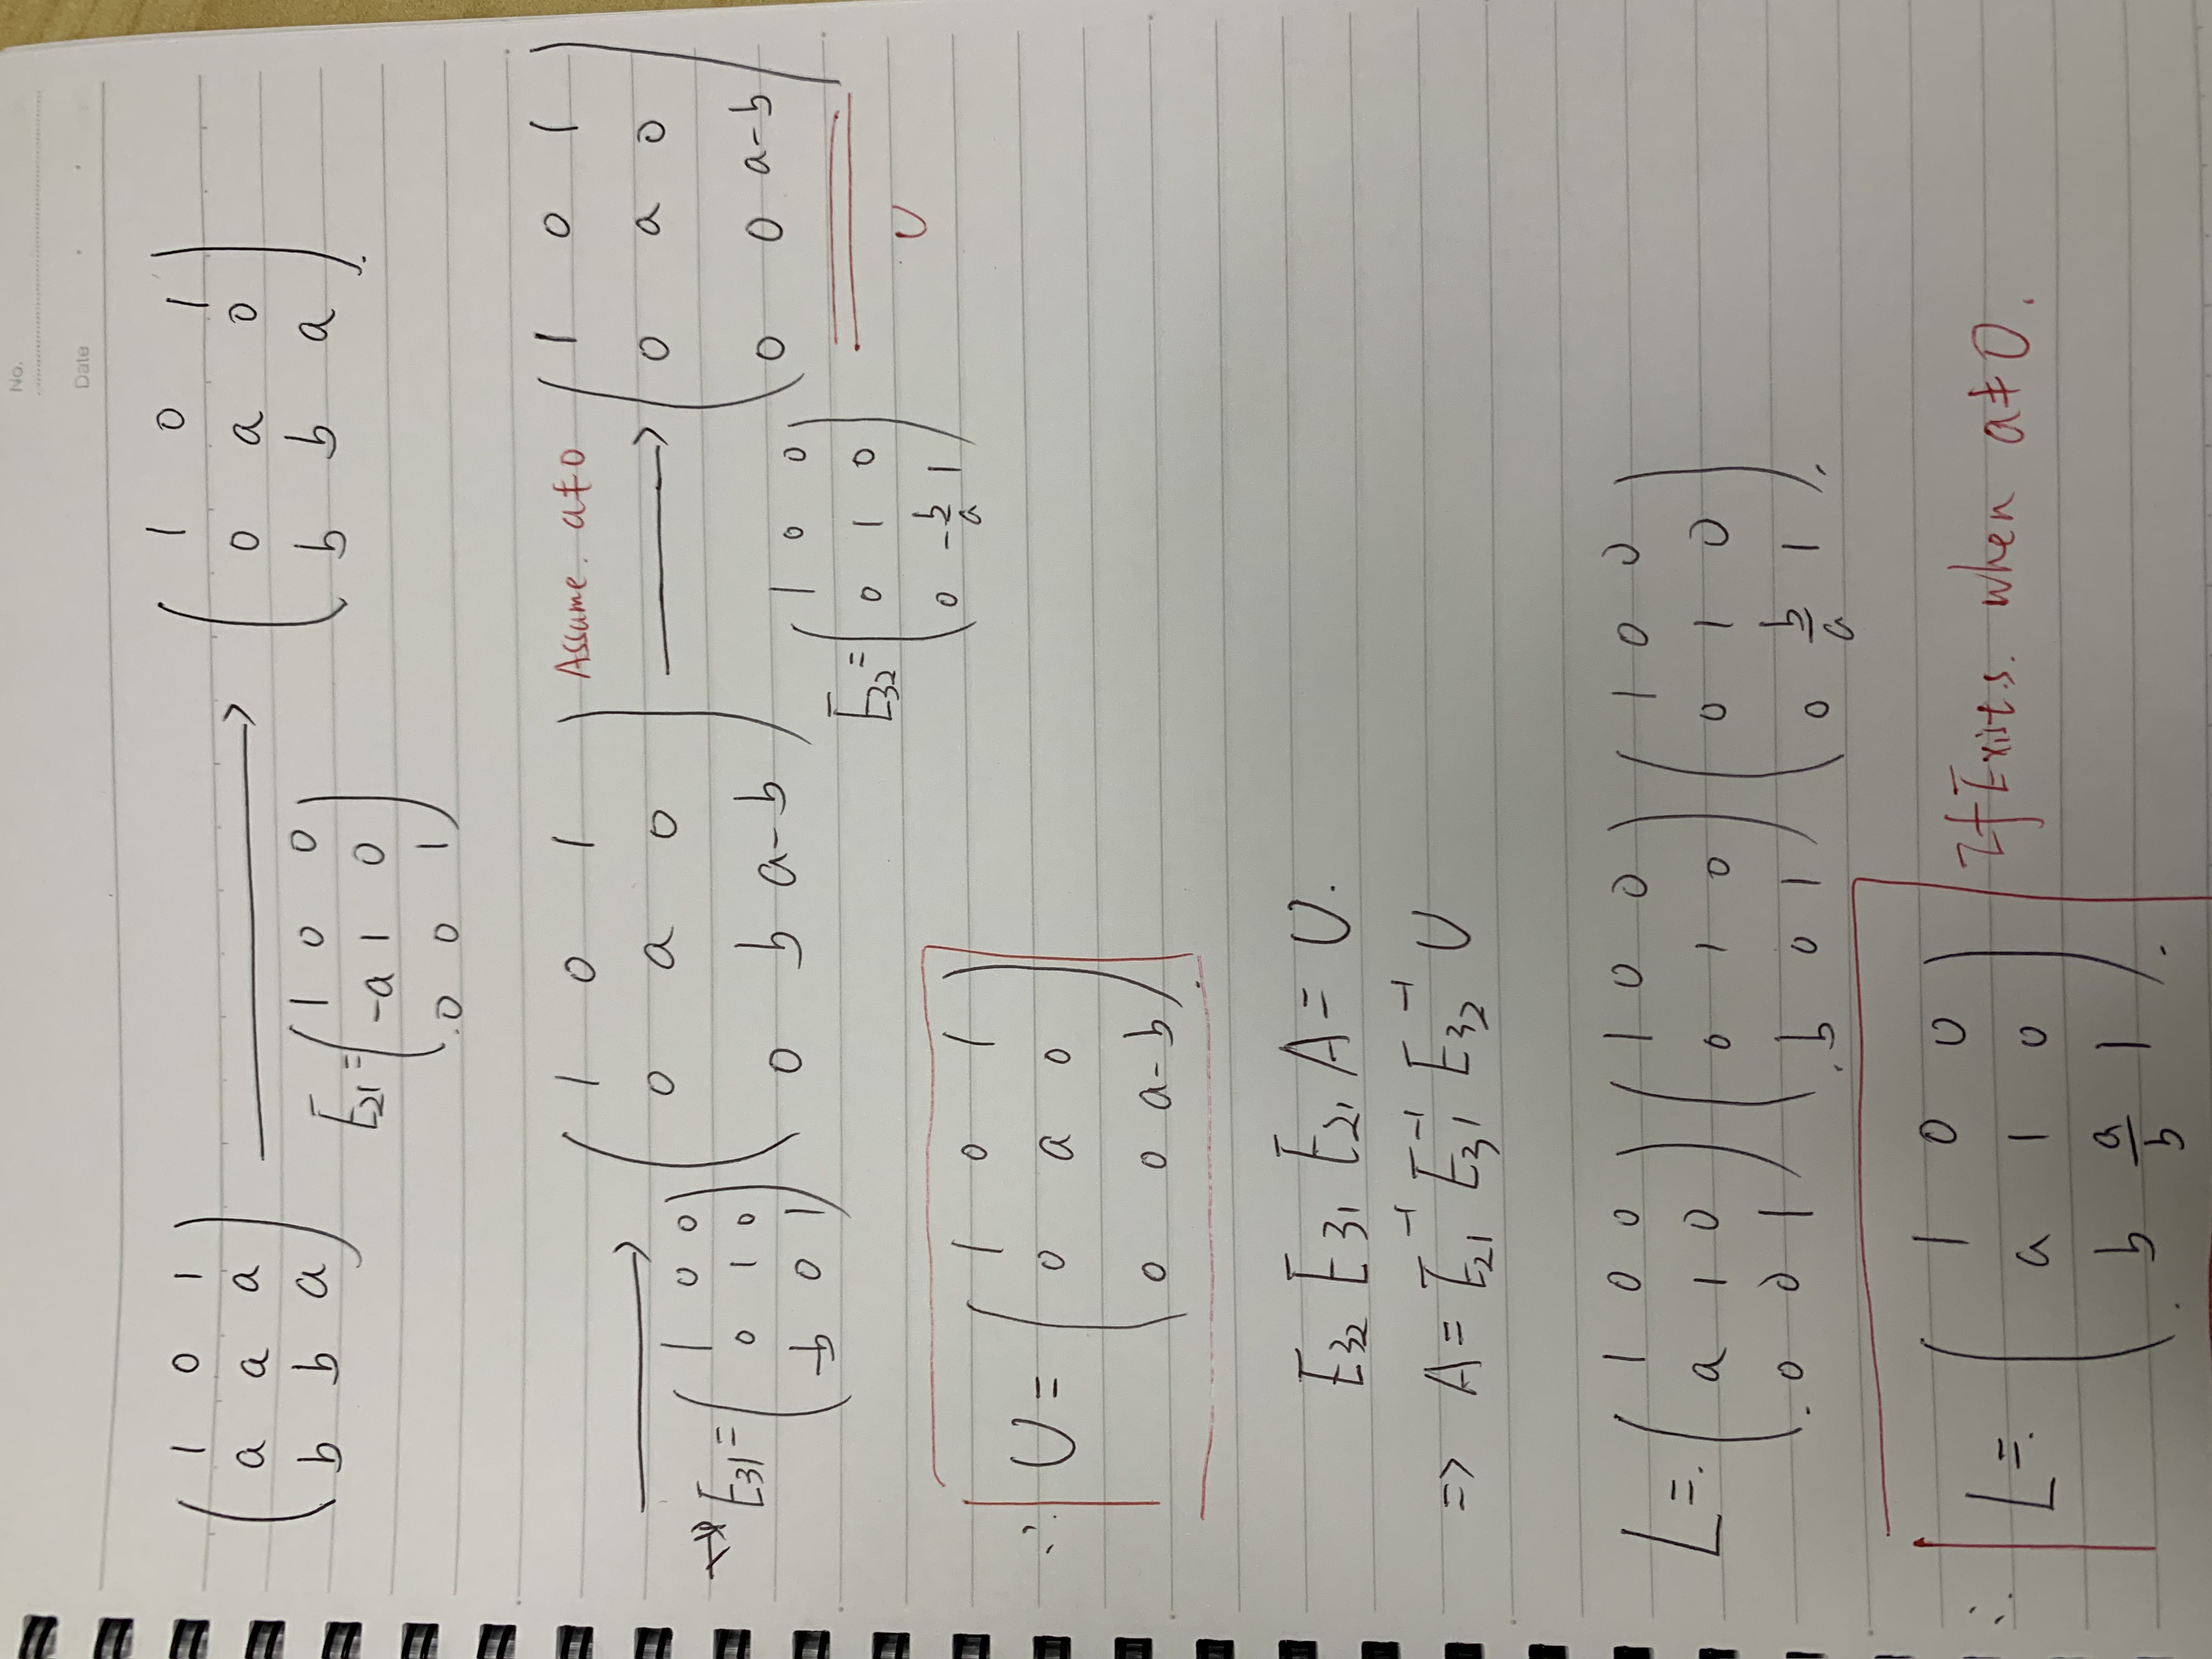 No.
Date
( 1 0 1 ; a a a ; b b a ) → ( 1 0 1 ; 0 a 0 ; b b a ).
E21 = ( 1 0 0 ; -a 1 0 ; 0 0 1 )
→ ( 1 0 1 ; 0 a 0 ; 0 b a-b ) Assume. a≠0 → ( 1 0 1 ; 0 a 0 ; 0 0 a-b )
E31 = ( 1 0 0 ; 0 1 0 ; -b 0 1 )
E32 = ( 1 0 0 ; 0 1 0 ; 0 -b/a 1 )
U
∴ U = ( 1 0 1 ; 0 a 0 ; 0 0 a-b )
E32 E31 E21 A = U.
=> A = E21⁻¹ E31⁻¹ E32⁻¹ U
L = ( 1 0 0 ; a 1 0 ; 0 0 1 ) ( 1 0 0 ; 0 1 0 ; b 0 1 ) ( 1 0 0 ; 0 1 0 ; 0 b/a 1 ).
∴ L = ( 1 0 0 ; a 1 0 ; b a/b 1 ). If Exists. when a≠0.